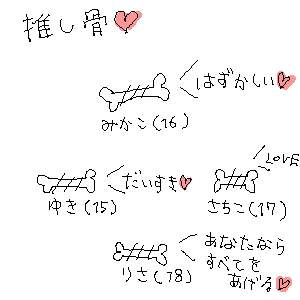 推し骨
はずかしい
みかこ(16)
だいすき
ゆき(15)
LOVE
さちこ(17)
あなたなら
すべてを
あげる
りさ(18)